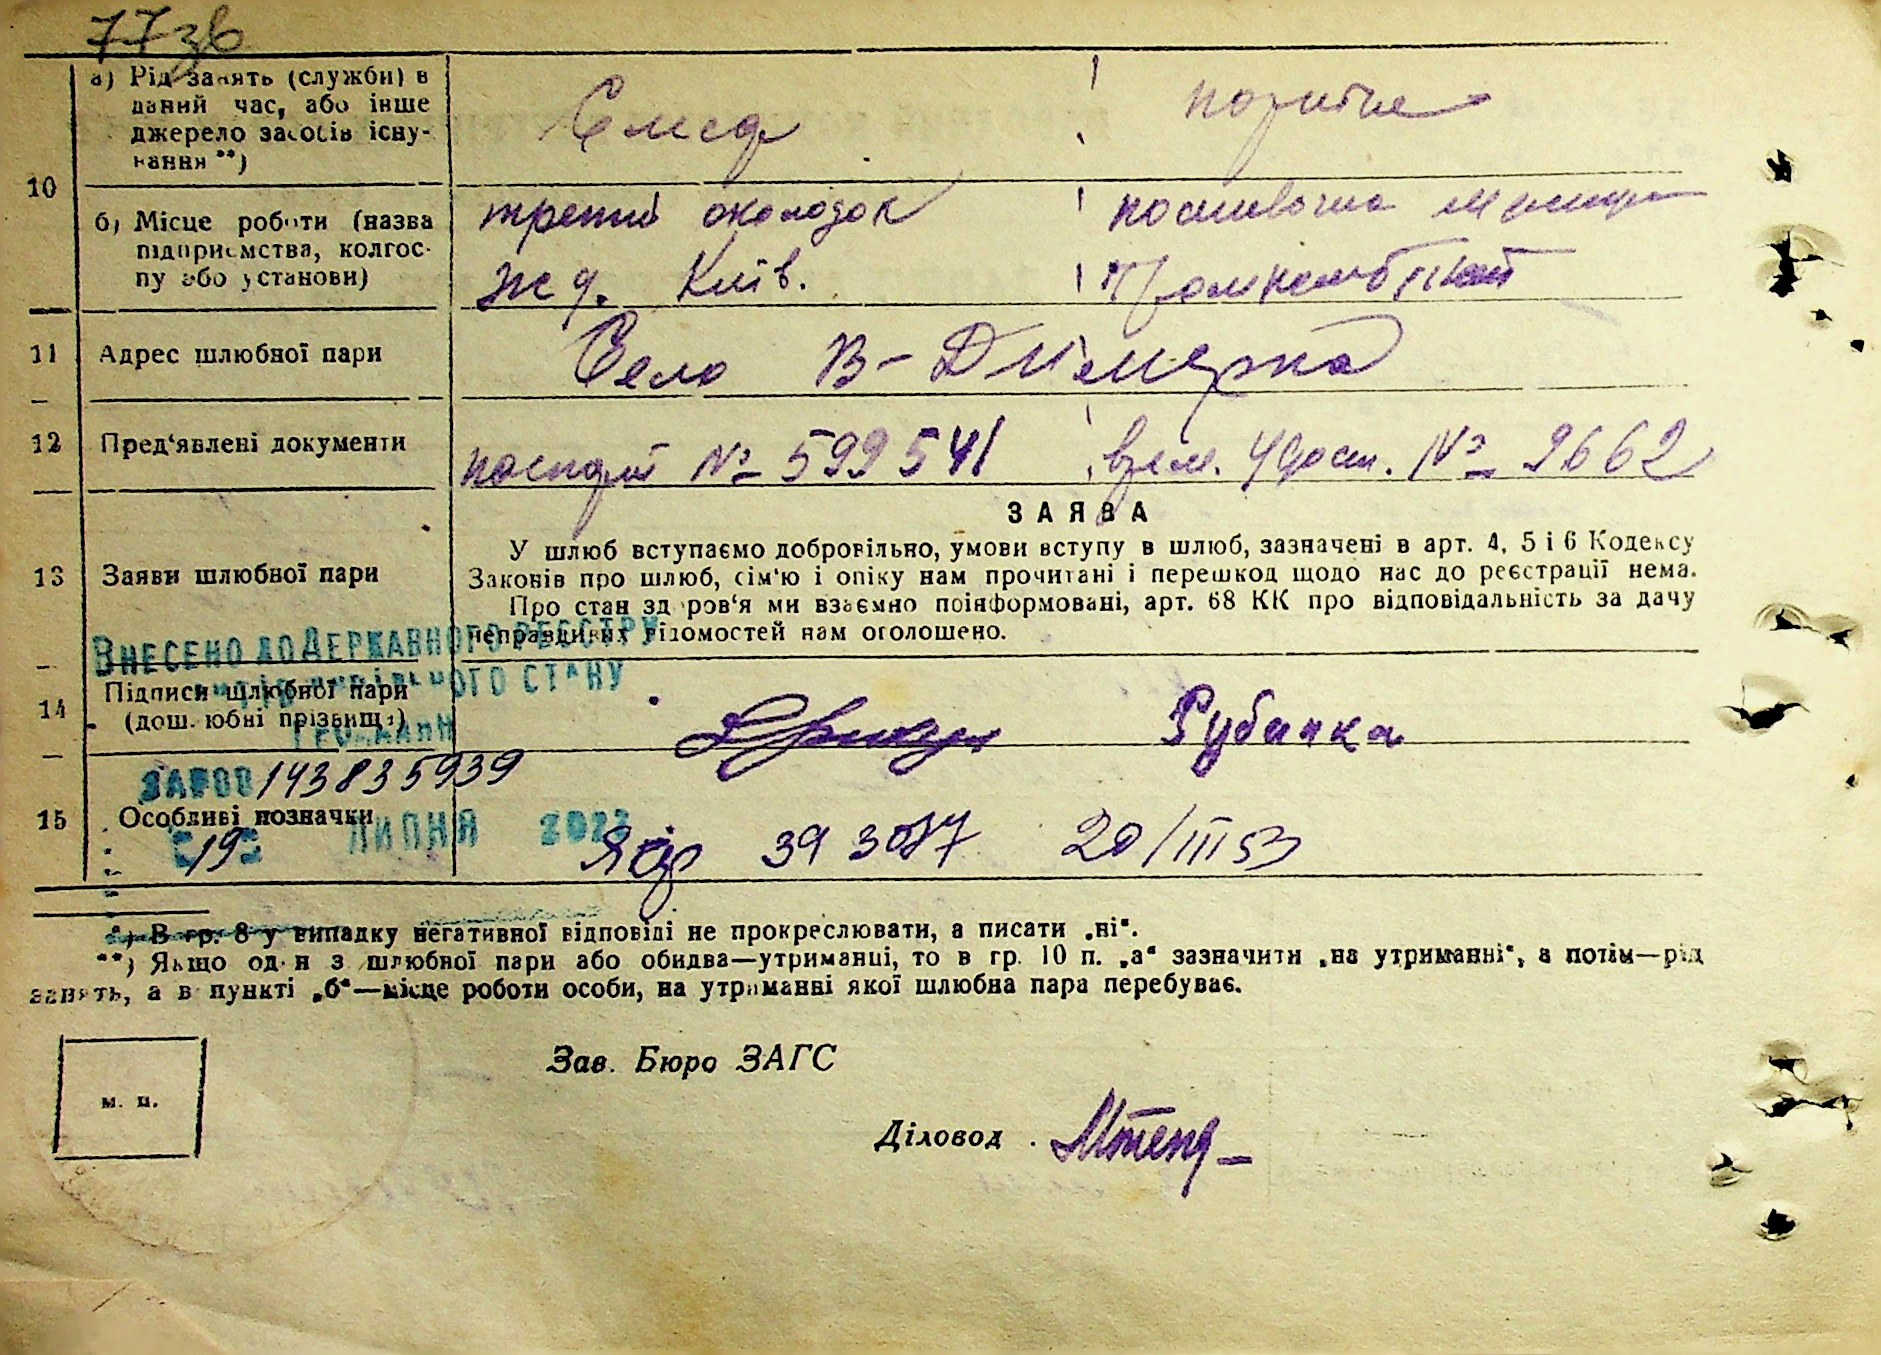 77зв
10
а) Рід занять (служби) в даний час, або інше джерело засобів існування **)
б) Місце роботи (назва підприємства, колгоспу або установи)
третий околодок
жд. Київ.
11 Адрес шлюбної пари
Село В-Димерка
12 Пред'явлені документи
паспорт № 599541
тим. удост. № 2662
ЗАЯВА
13 Заяви шлюбної пари
У шлюб вступаємо добровільно, умови вступу в шлюб, зазначені в арт. 4, 5 і 6 Кодексу
Законів про шлюб, сім'ю і опіку нам прочитані і перешкод щодо нас до реєстрації нема.
Про стан здоров'я ми взаємно поінформовані, арт. 68 КК про відповідальність за дачу
неправдивих відомостей нам оголошено.
ВНЕСЕНО ДО ДЕРЖАВНОГО РЕЄСТРУ
АКТІВ ЦИВІЛЬНОГО СТАНУ
ГРОМАДЯН
14 Підписи шлюбної пари
(дошлюбні прізвища)
Рубанка
143835939
15 Особливі позначки
19 ЛИПНЯ
20/III 53
*) В гр. 8 у випадку негативної відповіді не прокреслювати, а писати „ні“.
**) Якщо один з шлюбної пари або обидва—утриманці, то в гр. 10 п. „а“ зазначити „на утриманні“, а потім—рід
занять, а в пункті „б“—місце роботи особи, на утриманні якої шлюбна пара перебуває.
Зав. Бюро ЗАГС
м. п.
Діловод